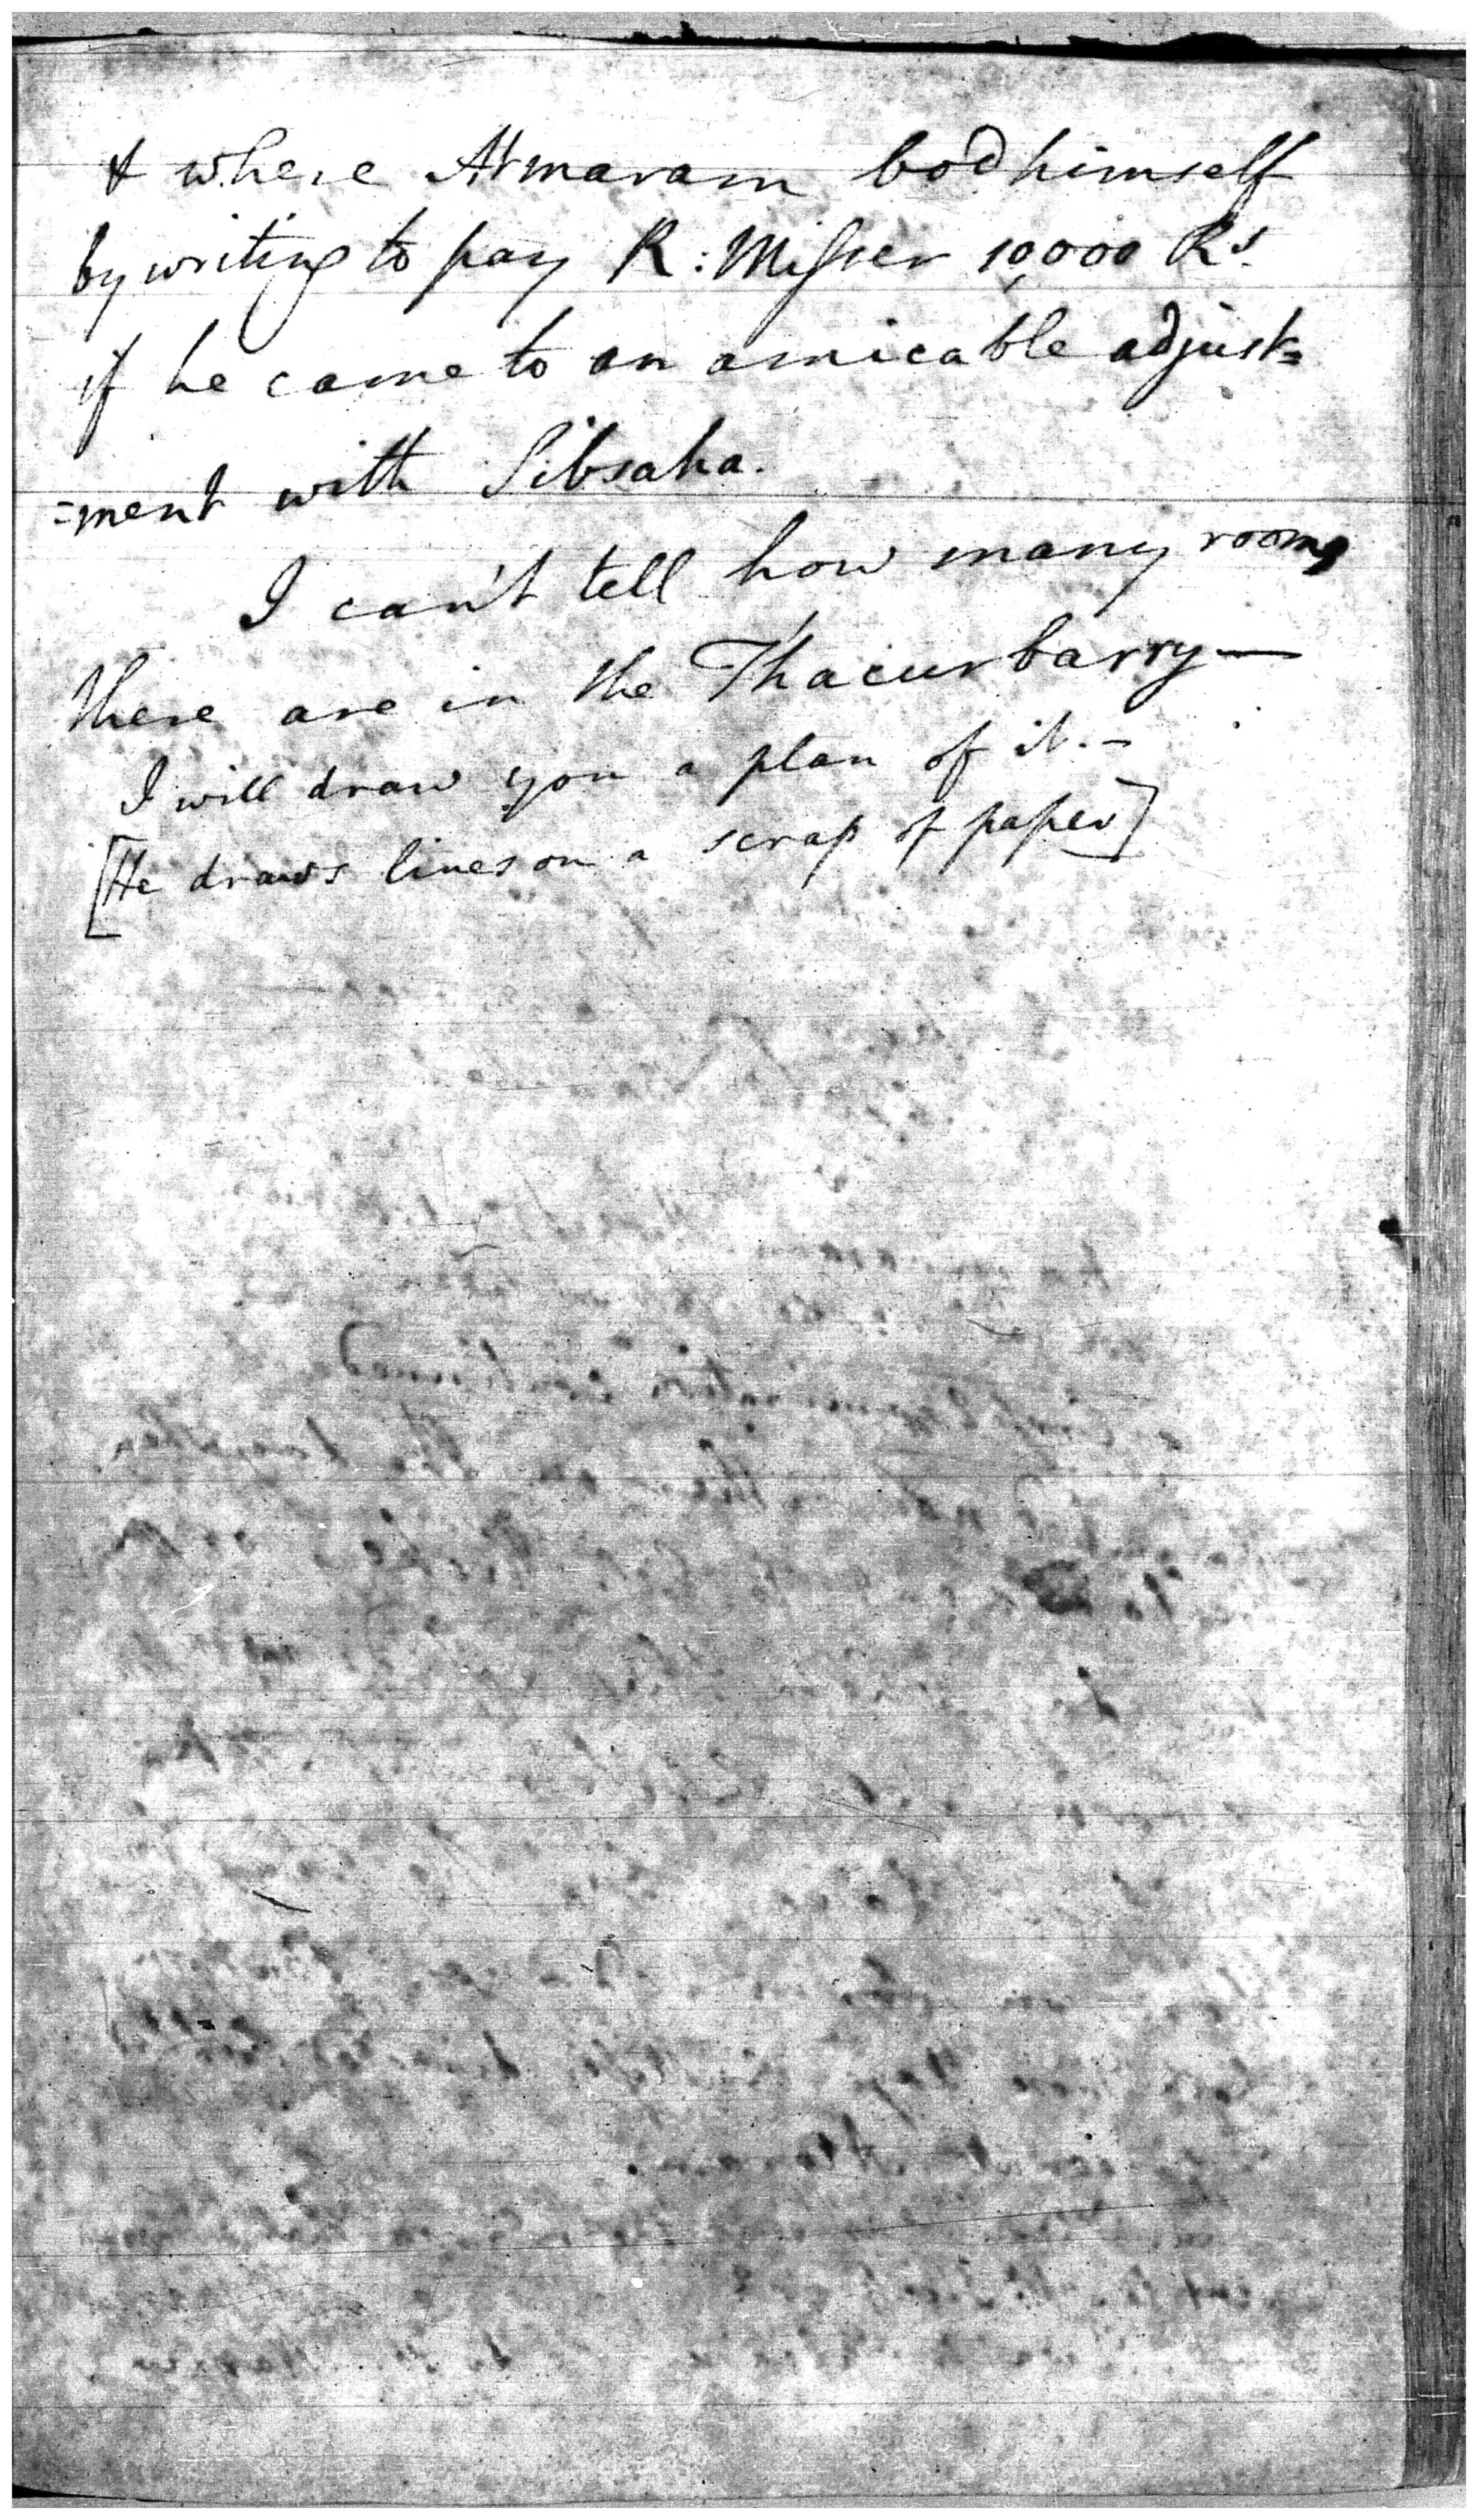 & where Atmaram bod himself
by writing to pay R: Misser 10,000 Rs.
if he came to an amicable adjust=
=ment with Sibsaha.
I can't tell how many rooms
there are in the Thacurbarry—
I will draw you a plan of it.—
[He draws lines on a scrap of paper]